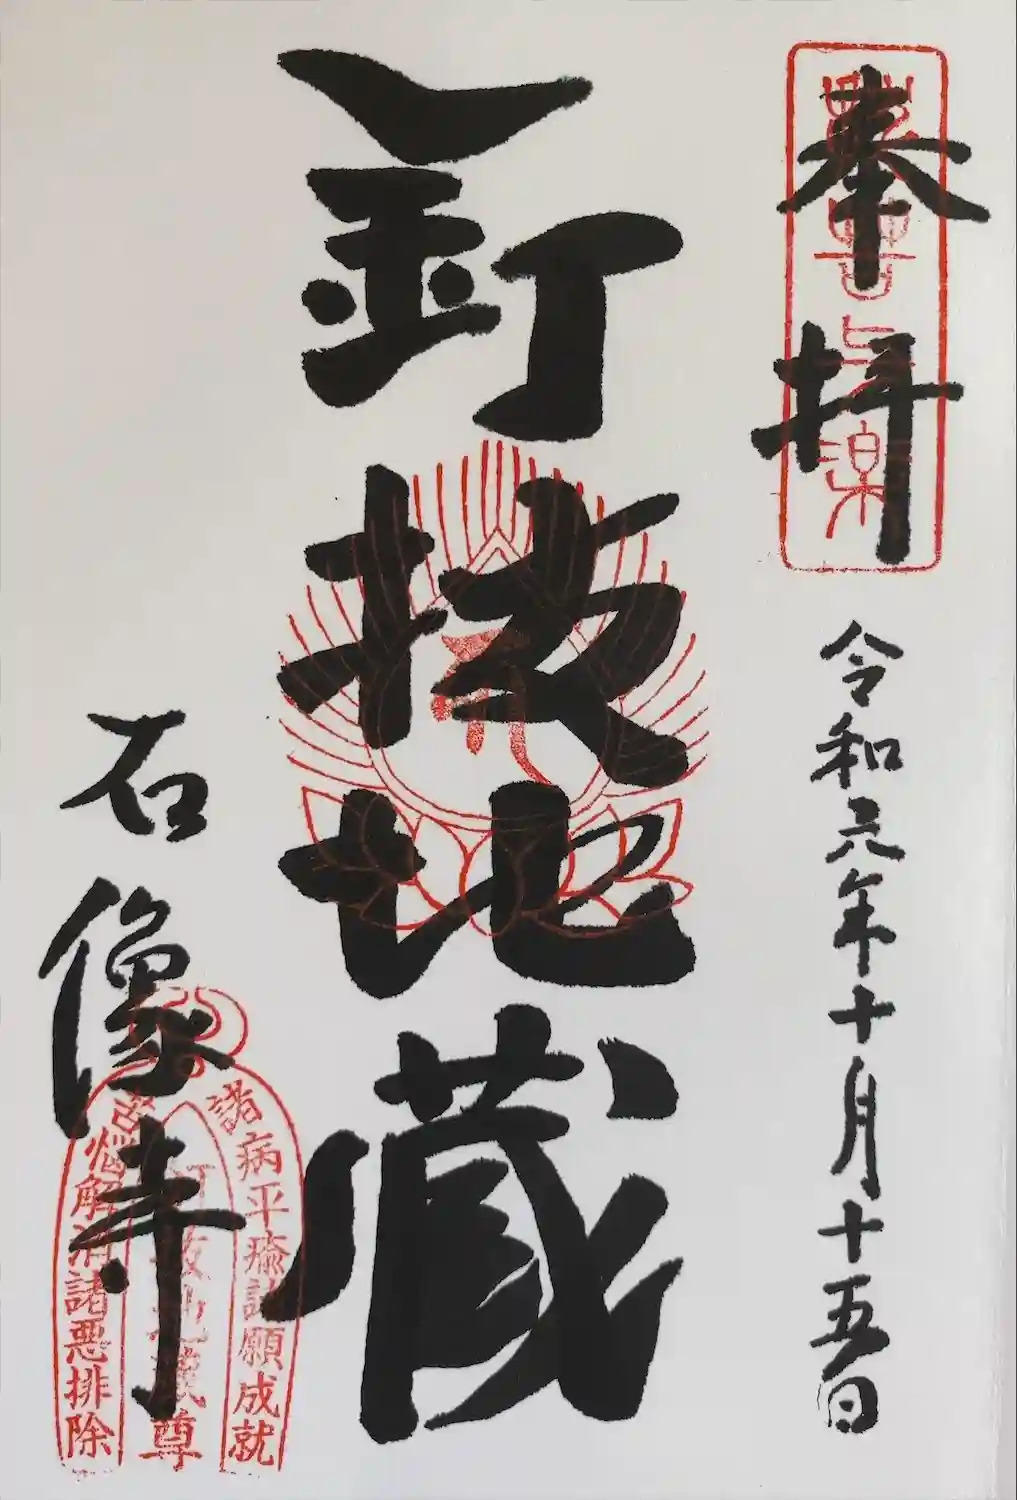 奉拝
令和元年十月十五日
釘抜地蔵
石像寺
諸病平癒諸願成就
釘抜地蔵尊
苦悩解消諸悪排除